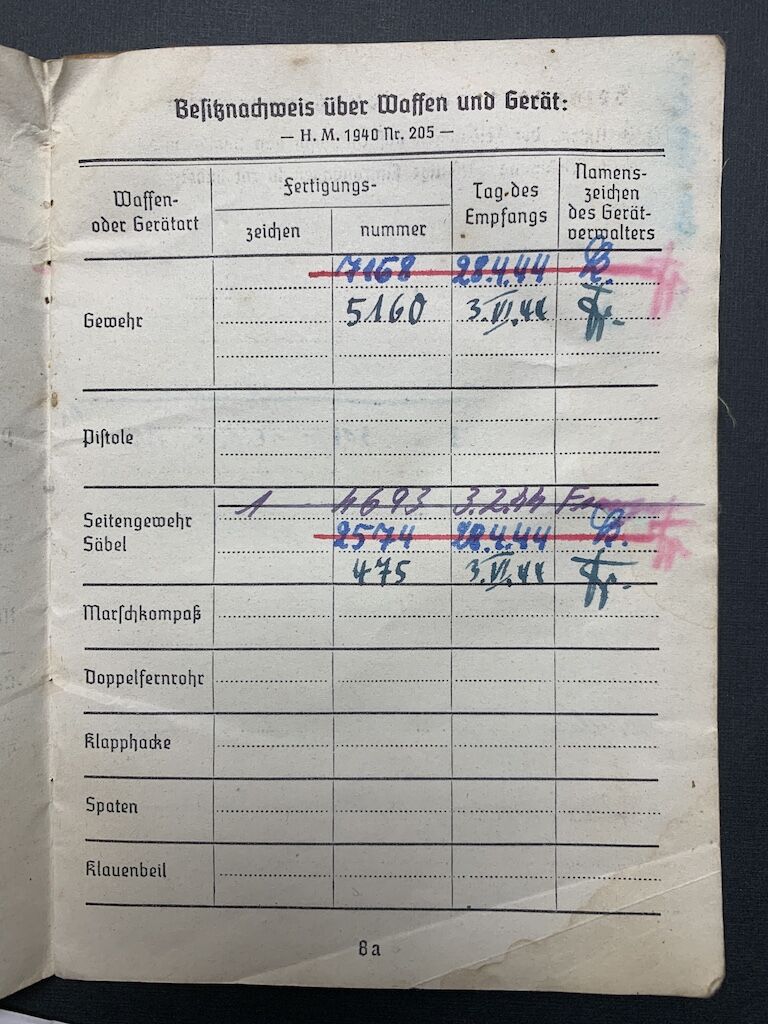 Besitznachweis über Waffen und Gerät:
— H. M. 1940 Nr. 205 —
Waffen- oder Gerätart
Fertigungs-
zeichen
nummer
Tag des Empfangs
Namens-zeichen des Gerät-verwalters
7168 28.4.44 B.
Gewehr 5160 3.VI.44 Fr.
Pistole
1 4693 3.2.44
Seitengewehr
Säbel 2574 28.4.44 B.
475 3.VI.44 Fr.
Marschkompaß
Doppelfernrohr
Klapphacke
Spaten
Klauenbeil
8a